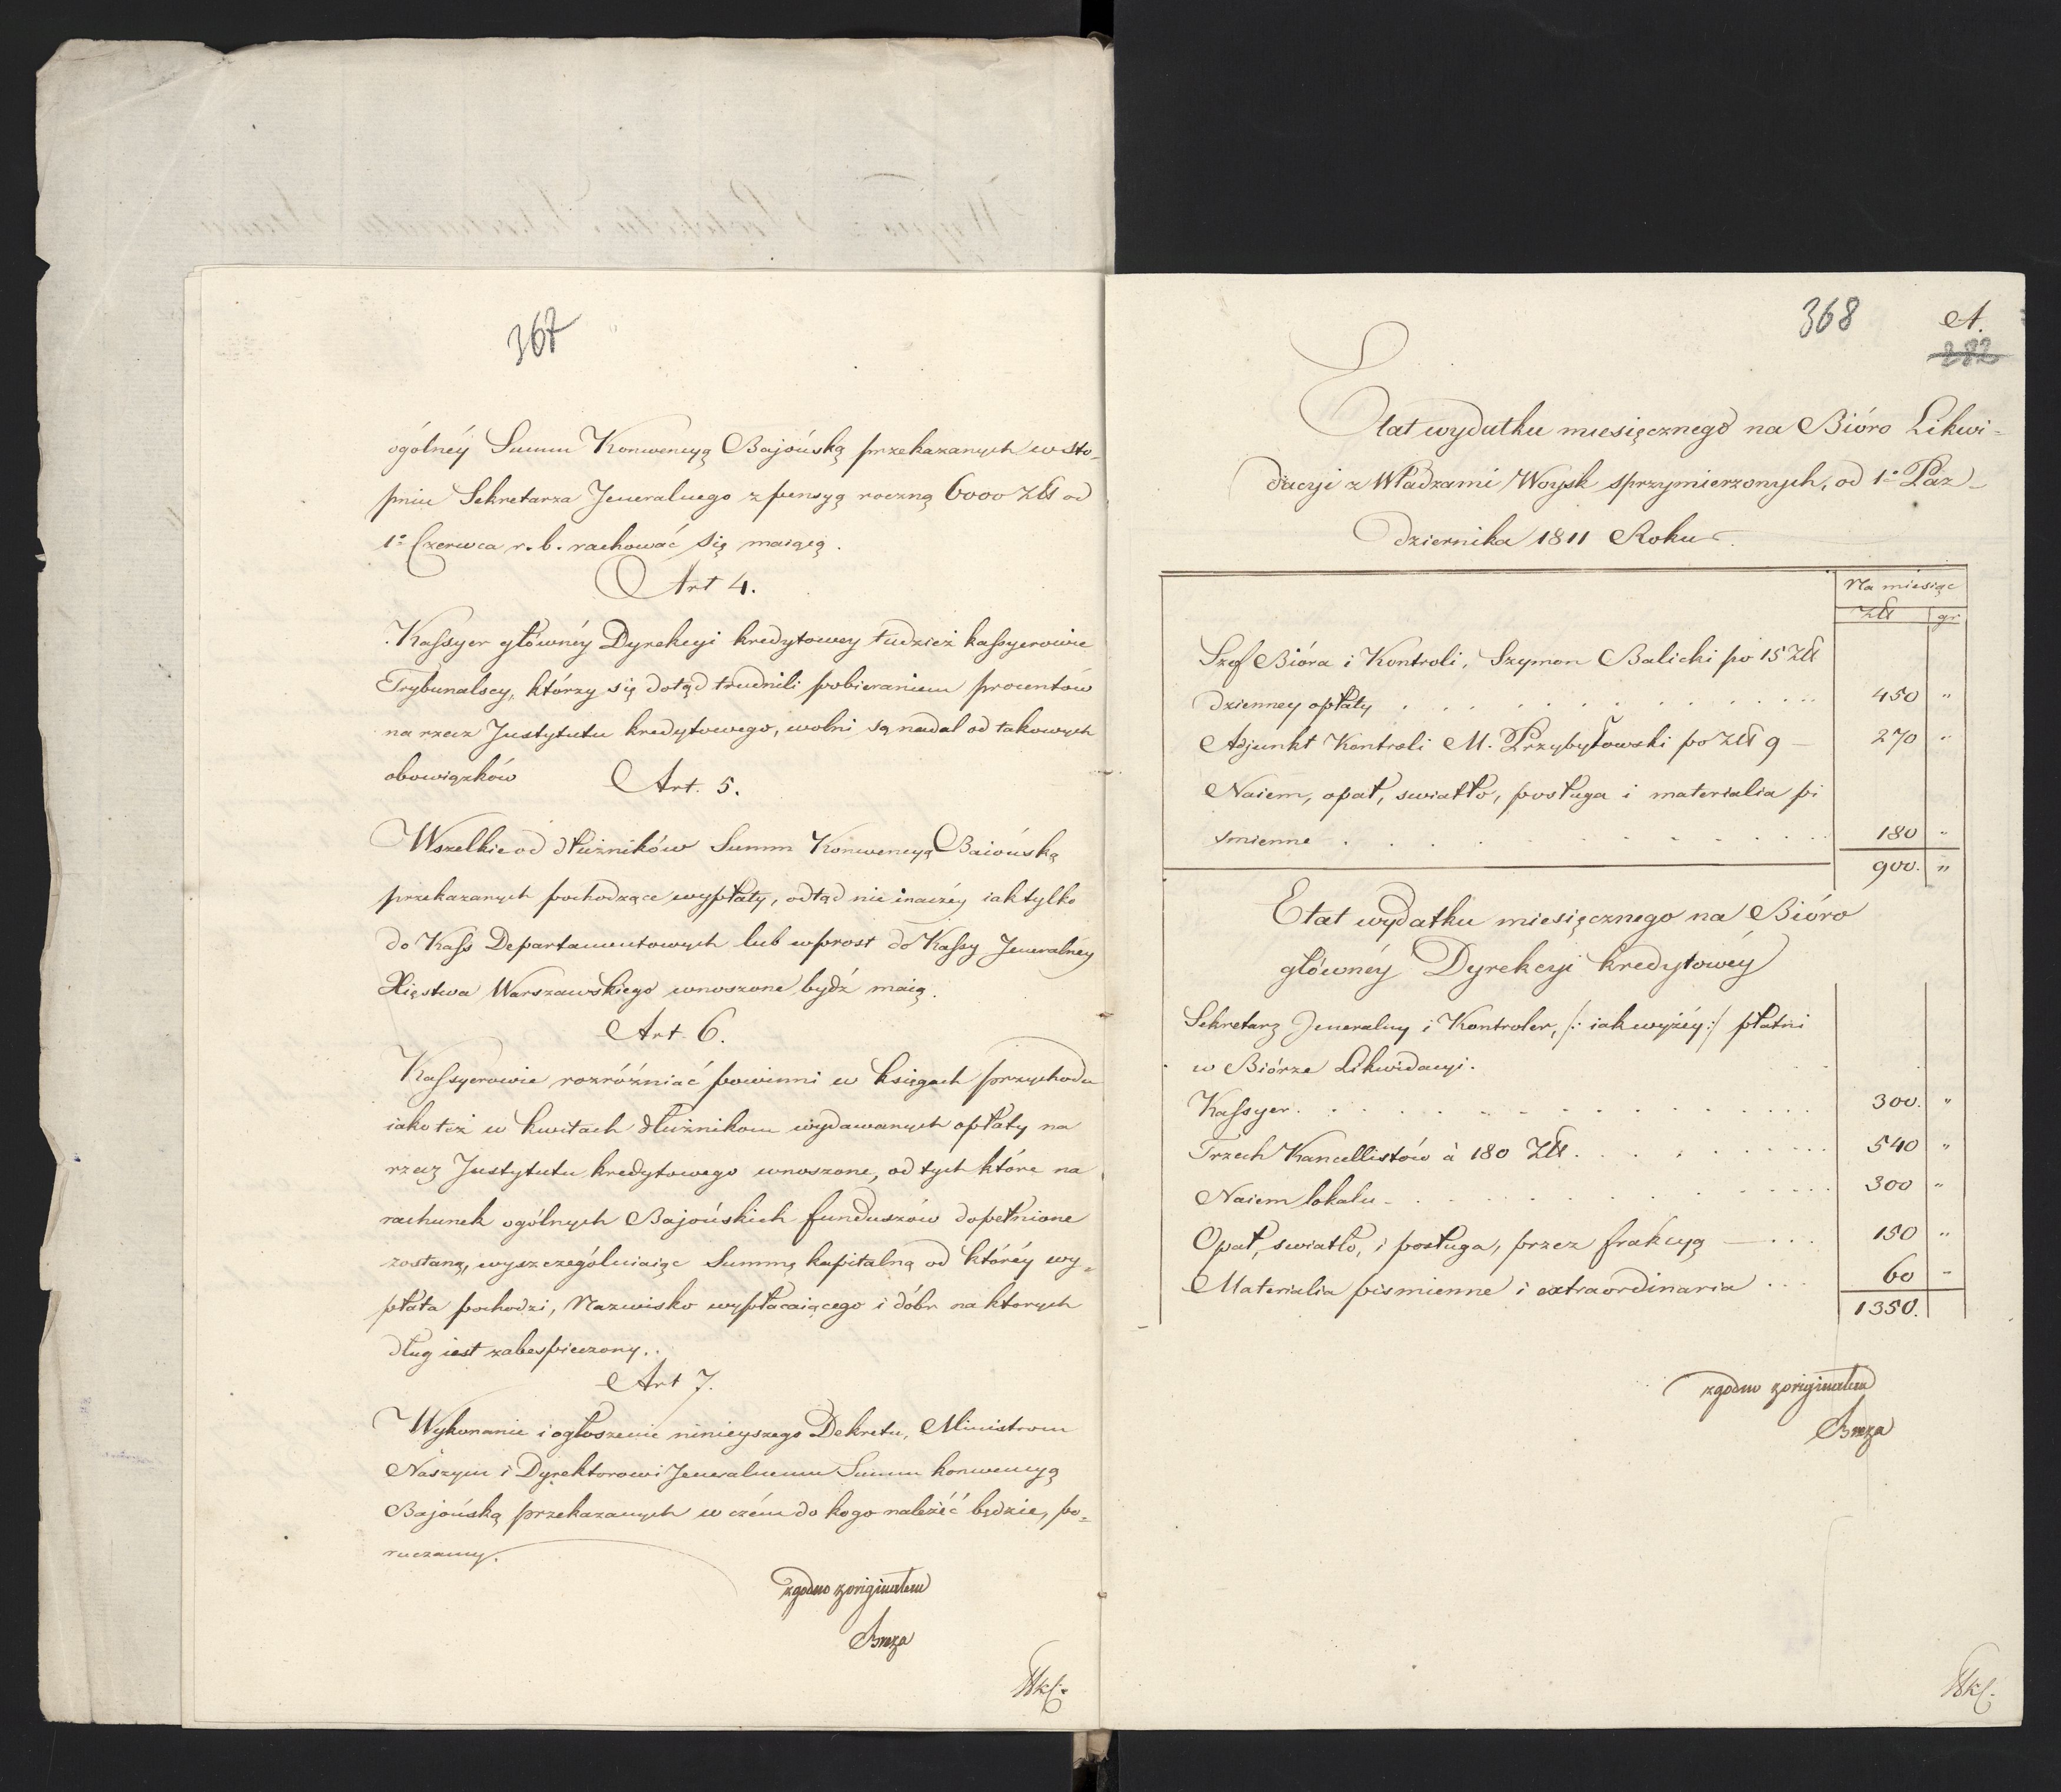 367
ogólnéy Summ Konwencyą Bajońską przekazanych w sto-
pniu Sekretarza Jeneralnego z pensyą roczną 6000 Złł od
1º Czerwca r. b. rachować się maiącą.
Art 4.
Kassyer głównéy Dyrekcyi kredytowey tudzież kassyerowie
Trybunalscy, którzy się dotąd trudnili pobieraniem procentów
na rzecz Justytutu kredytowego, wolni są nadal od takowych
obowiązków
Art. 5.
Wszelkie od dłużników Summ Konwencyą Baiońską
przekazanych pochodzące wypłaty, odtąd nie inaczéy iak tylko
do Kass Departamentowych lub wprost do Kassy Jeneralnéy
Xięstwa Warszawskiego wnoszone bydź maią.
Art 6.
Kassyerowie rozróżniać powinni w księgach przychodu
iako też w kwitach dłużnikom wydawanych opłaty na
rzecz Justytutu kredytowego wnoszone, od tych które na
rachunek ogólnych Bajońskich funduszów dopełnione
zostaną, wyszczególniaiąc Summę kapitalną od któréy wy-
płata pochodzi, Nazwisko wypłacaiącego i dóbr na ktorych
dług iest zabespieczony.
Art 7.
Wykonanie i ogłoszenie ninieyszego Dekretu, Ministrom
Naszym i Dyrektorowi Jeneralnemu Summ konwencyą
Bajońską przekazanych w czém do kogo należéć będzie, po-
ruczamy.
zgodno z originałem
Breza
368
A.
282
Etat wydatku miesięcznego na Bióro Likwi-
dacyi z Władzami Woysk sprzymierzonych, od 1º Paz-
dziernika 1811 Roku.
Na miesiąc
Złł gr
Szef Bióra i Kontroli, Szymon Balicki po 15 Złł
dzienney opłaty . . . 450 "
Adjunkt Kontroli M. Przybyłowski po Złł 9 — 270 "
Naiem, opał, swiatło, posługa i materialia pi
smienne . . . 180 "
900. "
Etat wydatku miesięcznego na Bióro
głównéy Dyrekcyi kredytowéy
Sekretarz Jeneralny i Kontroler, /: iak wyżéy :/ płatni
w Biórze Likwidacyi.
Kassyer . . . 300. "
Trzech Kancellistów à 180 Złł . . . 540 "
Naiem lokalu . . . 300 "
Opał, swiatło, i posługa, przez frakcyą — . . . 150 "
Materialia pismienne i extraordinaria . . . 60 "
1350.
zgodno z originałem
Breza